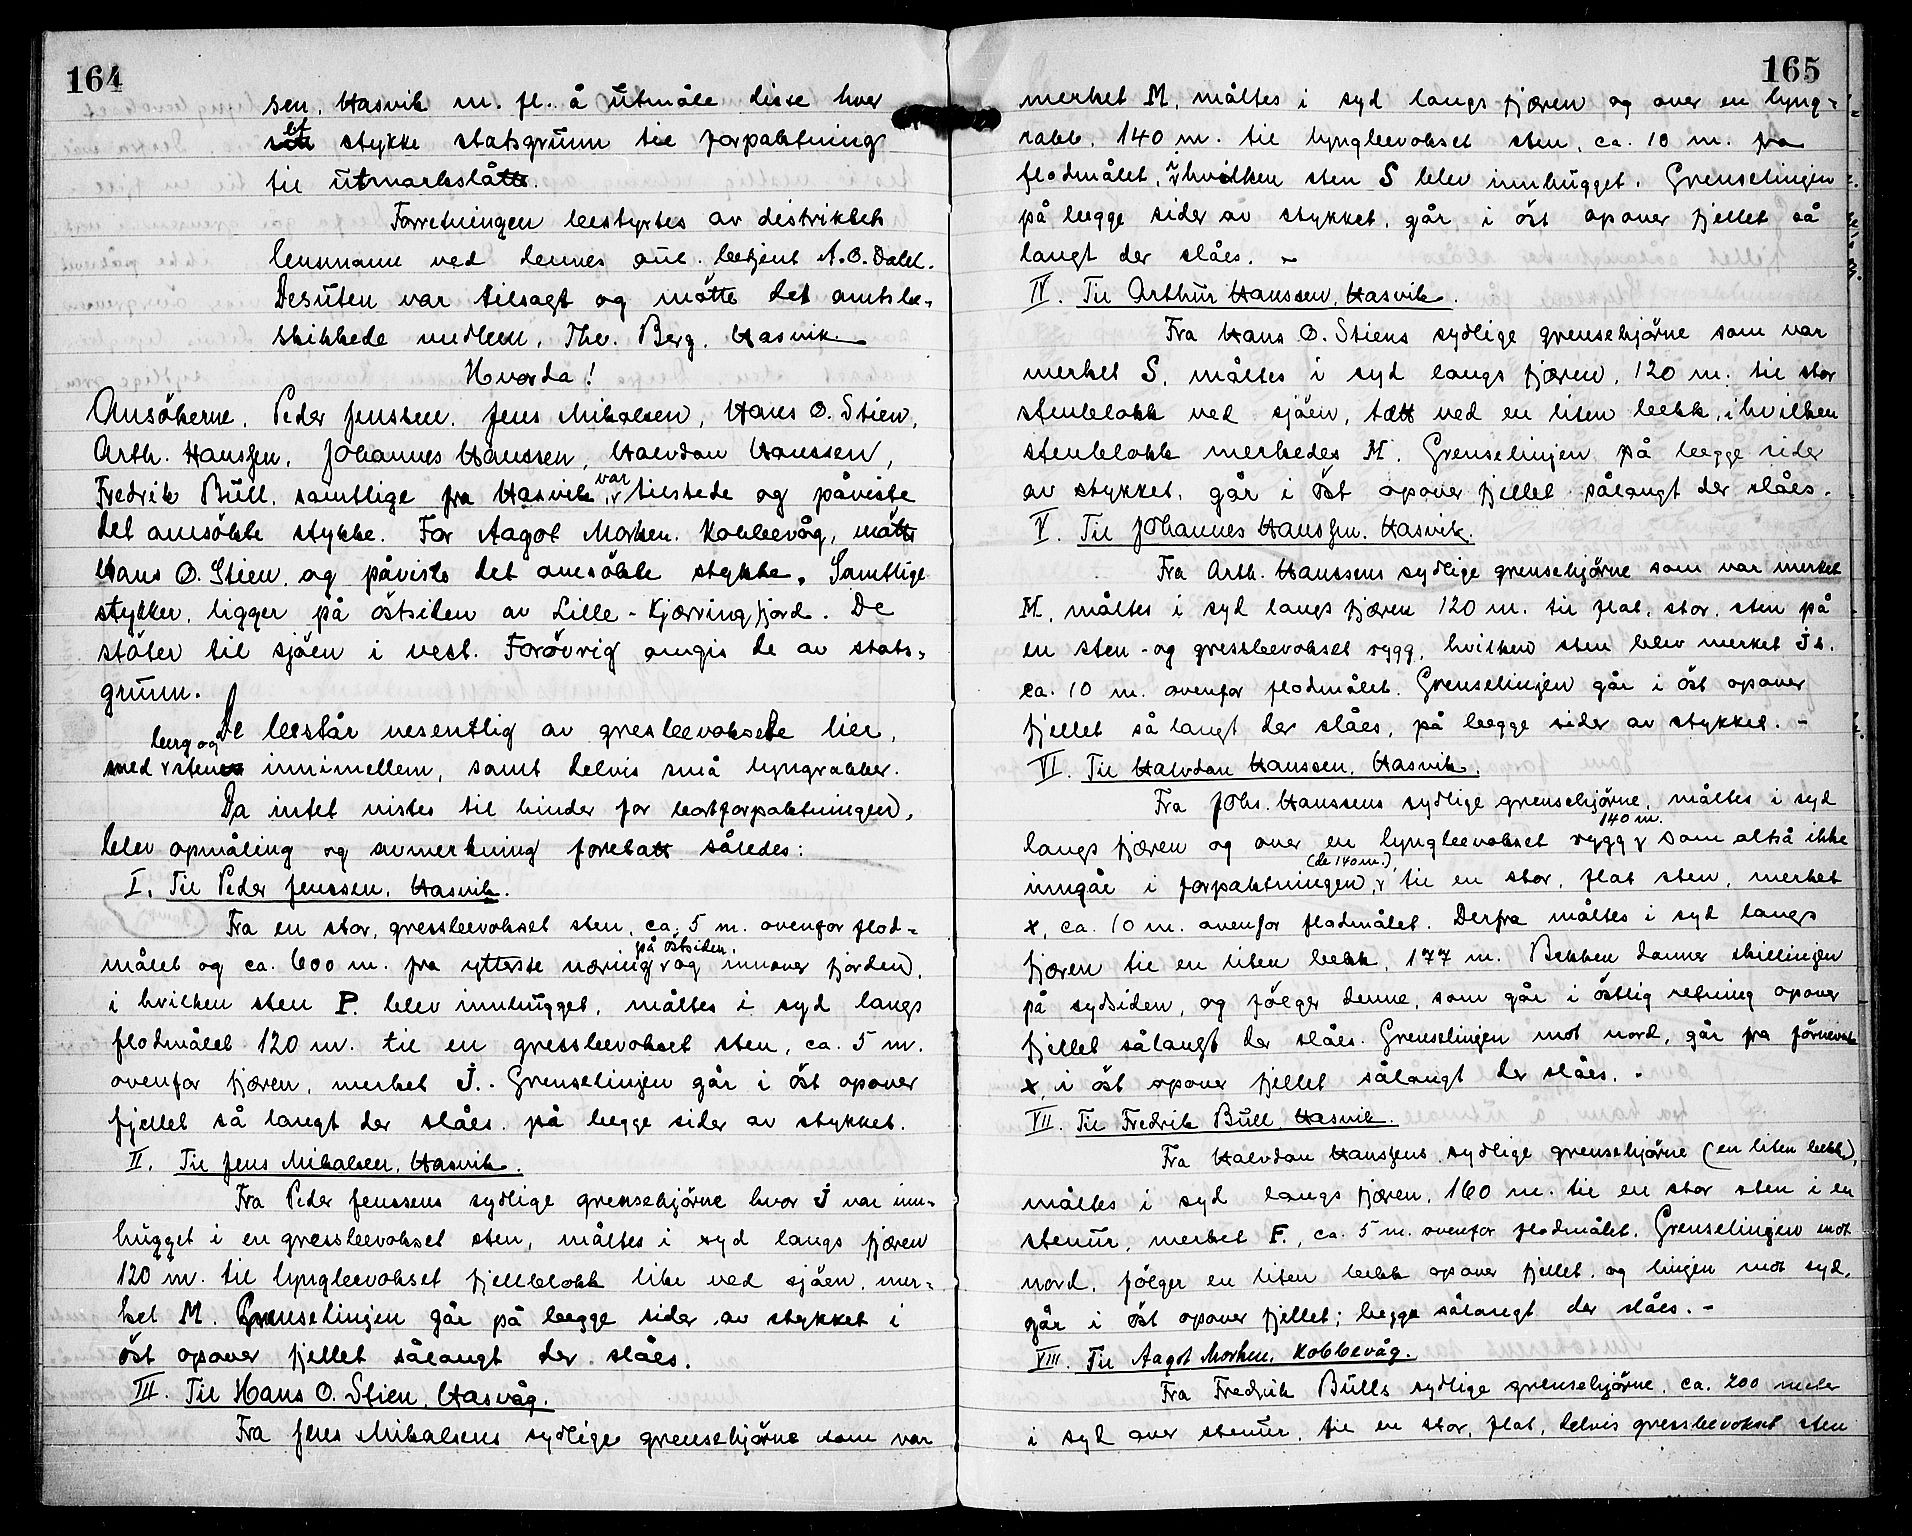 164
sen, Hasvik m. fl. å utmåle disse hver
et stykke statsgrunn til forpaktning
til utmarkslåtte.
Forretningen bestyrtes av distriktets
lensmann ved dennes aut. betjent A. O. Dahl.
Desuten var tilsagt og møtte det amtsbe-
skikkede medlem, Thv. Berg, Hasvik.
Hvorda!
Ansökerne, Peder Jenssen, Jens Mikalsen, Hans O. Stien,
Arth. Hanssen, Johannes Hanssen, Halvdan Hanssen,
Fredrik Büll, samtlige fra Hasvik, var tilstede og påviste
det ansökte stykke. For Aagot Morken, Kobbevåg, møtte
Hans O. Stien, og påviste det ansökte stykke. Samtlige
stykker, ligger på östsiden av Lille-Kjærringfjord. De
stöter til sjöen i vest. Forövrig omgis de av stats-
grunn.
De består vesentlig av gresbevoksede lier,
med berg og sten innimellem, samt delvis små lyngrabber.
Da intet vistes til hinder for bortforpaktningen,
blev opmåling og avmerkning foretatt således:
I. Til Peder Jenssen, Hasvik.
Fra en stor, gressbevokset sten, ca. 5 m. ovenfor flod-
målet og ca. 600 m. fra ytterste næring på östsiden, og innover fjorden,
i hvilken sten P. blev innhugget, måltes i syd langs
flodmålet 120 m. til en gressbevokset sten, ca. 5 m.
ovenfor fjæren, merket J. Grenselinjen går i öst opover
fjellet så langt der slåes, på begge sider av stykket.
II. Til Jens Mikalsen, Hasvik.
Fra Peder Jenssens sydlige grensehjörne hvor J var inn-
hugget i en gressbevokset sten, måltes i syd langs fjæren
120 m. til lyngbevokset fjellblokk like ved sjöen, mer-
ket M. Grenselinjen går på begge sider av stykket i
öst opover fjellet sålangt der slåes.
III. Til Hans O. Stien, Hasvåg.
Fra Jens Mikalsens sydlige grensehjörne som var
165
merket M, måltes i syd langs fjæren og over en lyng-
rabb, 140 m. til lyngbevokset sten, ca. 10 m. fra
flodmålet, i hvilken sten S blev innhugget. Grenselinjen
på begge sider av stykket, går i öst opover fjellet så
langt der slåes. -
IV. Til Arthur Hanssen, Hasvik.
Fra Hans O. Stiens sydlige grensehjörne som var
merket S, måltes i syd langs fjæren, 120 m. til stor
stenblokk ved sjöen, tætt ved en liten bekk, i hvilken
stenblokk merkedes M. Grenselinjen på begge sider
av stykket, går i öst opover fjellet sålangt der slåes.
V. Til Johannes Hanssen, Hasvik.
Fra Arth. Hanssens sydlige grensehjörne som var merket
M, måltes i syd langs fjæren 120 m. til flat, stor, sten på
en sten- og gressbevokset rygg, hvilken sten blev merket Js.
ca. 10 m. ovenfor flodmålet. Grenselinjen går i öst opover
fjellet så langt der slåes, på begge sider av stykket. -
VI. Til Halvdan Hanssen, Hasvik.
Fra Johs. Hanssens sydlige grensehjörne, måltes i syd
langs fjæren og over en lyngbevokset rygg 140 m. som altså ikke
inngår i forpaktningen, (de 140 m.) til en stor, flat sten, merket
x, ca. 10 m. ovenfor flodmålet. Derfra måltes i syd langs
fjæren til en liten bekk, 177 m. Bekken danner skillinjen
på sydsiden, og fölger denne, som går i östlig retning opover
fjellet sålangt der slåes. Grenselinjen mot nord, går fra förnevnte
x, i öst opover fjellet sålangt der slåes. -
VII. Til Fredrik Büll, Hasvik.
Fra Halvdan Hanssens sydlige grensehjörne (en liten bekk),
måltes i syd langs fjæren, 160 m. til en stor sten i en
stenur, merket F., ca. 5 m. ovenfor flodmålet. Grenselinjen mot
nord, fölger en liten bekk opover fjellet, og linjen mot syd,
går i öst opover fjellet; begge sålangt der slåes. -
VIII. Til Aagot Morken, Kobbevåg.
Fra Fredrik Bülls sydlige grensehjörne, ca. 200 meter
i syd over stenur, til en stor, flat, delvis gressbevokset sten